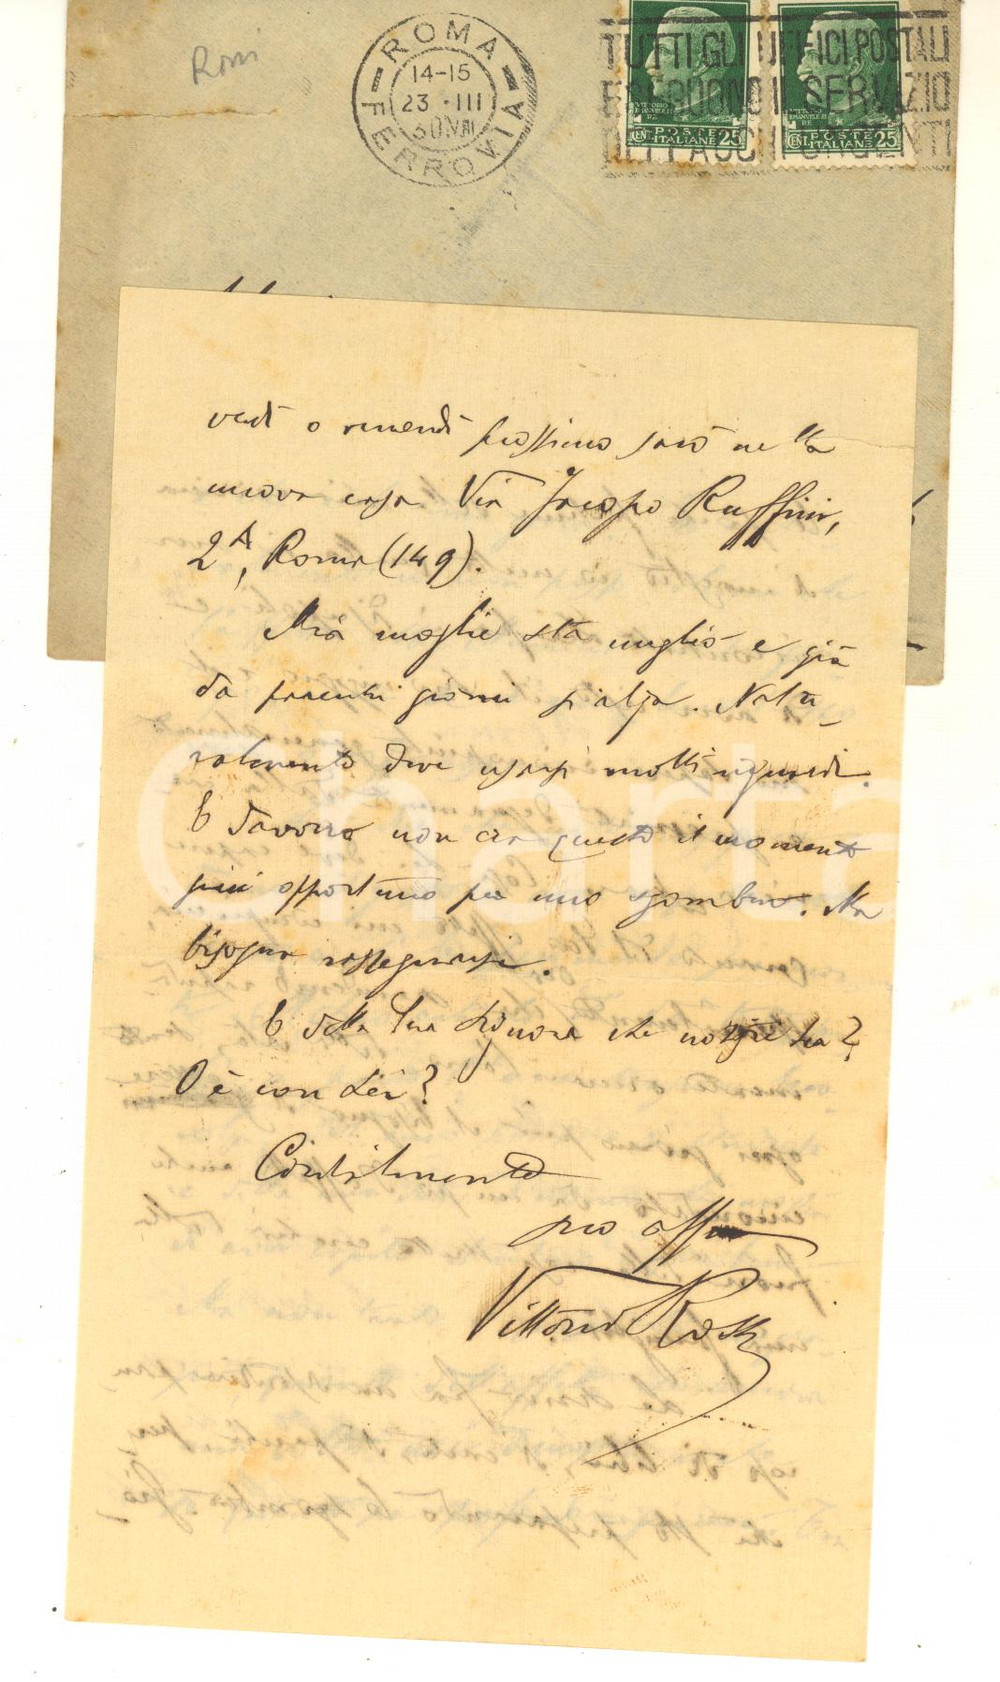 Roni
ROMA
14-15
23 · III
30 VIII
FERROVIA
TUTTI GLI UFFICI POSTALI
ESEGUONO IL SERVIZIO
DEI PACCHI URGENTI
POSTE
CENT. ITALIANE 25
POSTE
CENT. ITALIANE 25
o venerdì prossimo sarò nella
nuova casa Via Jacopo Ruffini,
2A, Roma (149).
Mia moglie sta meglio e già
da parecchi giorni si alza. Natu-
ralmente deve usarsi molti riguardi.
E davvero non era questo il momento
più opportuno per uno sgombero. Ma
bisogna rassegnarsi.
E della Sua Signora che notizie ha?
O è con Lei?
Cordialmente
suo aff.
Vittorio Rossi
Charta